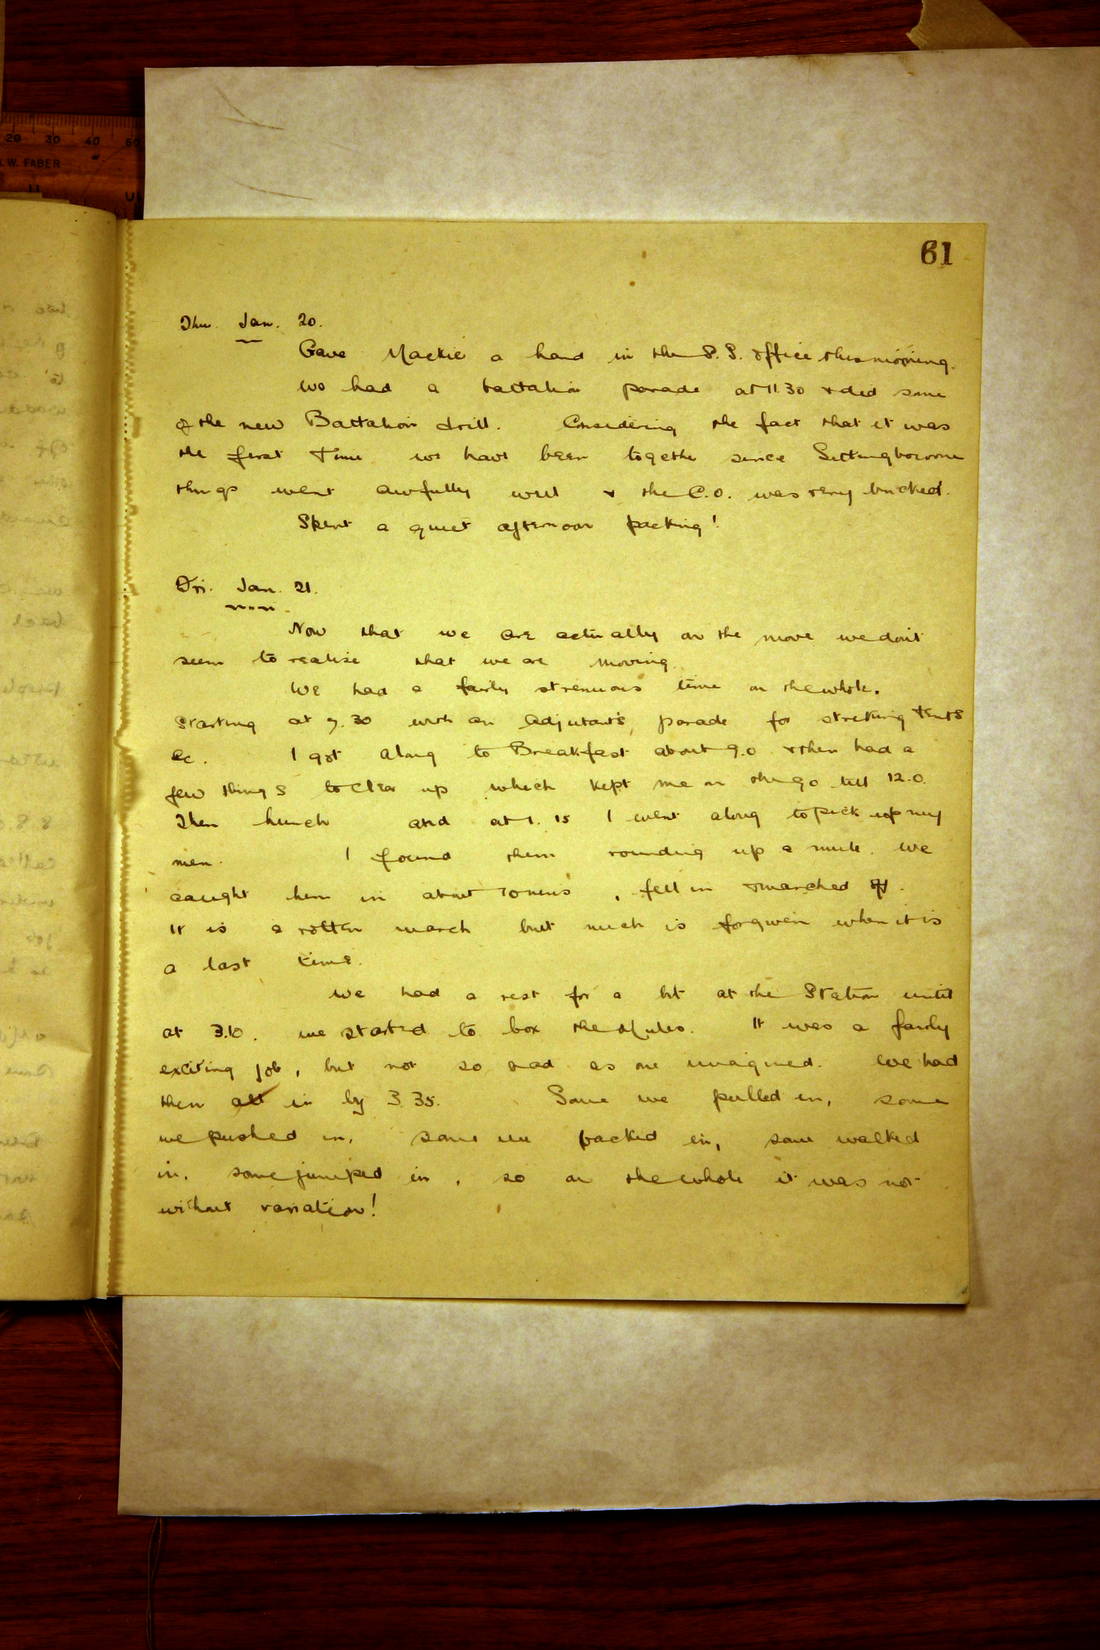 61
Thu. Jan. 20.
Gave Mackie a hand in the P.S. office this morning.
We had a battalion parade at 11.30 & did some
of the new Battalion drill. Considering the fact that it was
the first Time we have been together since Sittingbourne
things went awfully well & the C.O. was very bucked.
Spent a quiet afternoon packing!
Fri. Jan. 21.
Now that we are actually on the move we don't
seem to realise that we are moving.
We had a fairly strenuous time on the whole.
Starting at 7.30 with an Adjutant's parade for striking tents
&c. I got along to Breakfast about 9.0 & then had a
few things to clear up which kept me on the go till 12.0
Then lunch and at 1.15 I went along to pick up my
men. I found them rounding up a mule. We
caught him in about 10 mins, fell in & marched off.
It is a rotten march but much is forgiven when it is
a last time.
We had a rest for a bit at the Station until
at 3.10. we started to box the Mules. It was a fairly
exciting job, but not so bad as one imagined. We had
them all in by 3.35. Some we pulled in, some
we pushed in, some we packed in, some walked
in, some jumped in, so on the whole it was not
without variation!
20 30 40 50
W. FABER